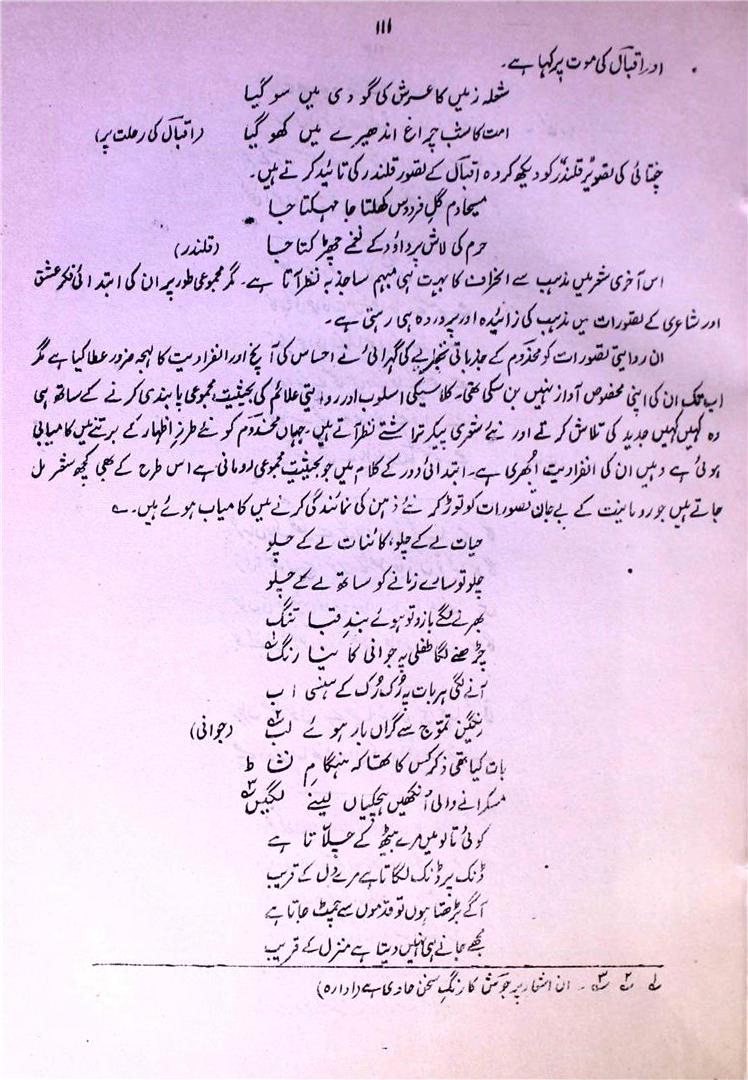 ۱۱۱
اور اقبالؔ کی موت پر کہا ہے۔
شعلہ زمیں کا عرش کی گودی میں سو گیا
امت کا شب چراغ اندھیرے میں کھو گیا (اقبالؔ کی رحلت پر)
چغتائی کی تصویر قلندرؔ کو دیکھ کر وہ اقبالؔ کے تصور قلندر کی تائید کرتے ہیں۔
مسیحا دم گلِ فردوس کھلتا جا مہکتا جا
حرم کی لاش پر داؤد کے نغمے چھڑکتا جا (قلندر)
اس آخری شعر میں مذہب سے انحراف کا بہت ہی مبہم سا جذبہ نظر آتا ہے۔ مگر مجموعی طور پر ان کی ابتدائی فکر عشق
اور شاعری کے تصورات میں مذہب کی زائیدہ اور پروردہ ہی رہتی ہے۔
ان روایتی تصورات کو مخدوم کے جذباتی تجربے کی گہرائی نے احساس کی آنچ اور انفرادیت کا لہجہ ضرور عطا کیا ہے مگر
اب تک ان کی اپنی مخصوص آواز نہیں بن سکی تھی۔ کلاسیکی اسلوب اور روایتی علائم کی بحیثیت مجموعی پابندی کرنے کے ساتھ ہی
وہ کہیں کہیں جدید کی تلاش کرتے اور نئے شعری پیکر تراشتے نظر آتے ہیں۔ جہاں مخدوم کو نئے طرزِ اظہار کے برتنے میں کامیابی
ہوئی ہے وہیں ان کی انفرادیت ابھری ہے۔ ابتدائی دور کے کلام میں جو بحیثیت مجموعی رومانی ہے اس طرح کے بھی کچھ شعر مل
جاتے ہیں جو رومانیت کے بے جان تصورات کو توڑ کر نئے ذہن کی نمائندگی کرنے میں کامیاب ہوئے ہیں۔ ؎
حیات لے کے چلو، کائنات لے کے چلو
چلو تو سارے زمانے کو ساتھ لے کے چلو
بھرنے لگے بازو تو ہوئے بندِ قبا تنگ
چڑھنے لگا طفلی پہ جوانی کا نیا رنگ ۱؎
آنے لگی ہر بات پہ رُک رُک کے ہنسی اب
رنگین تموّج سے گراں بار ہوئے لب ۲؎ (جوانی)
بات کیا تھی ذکر کس کا تھا کہ ہنگامِ نشاط
مسکرانے والی آنکھیں ہچکیاں لینے لگیں ۳؎
کوئی تالو میں مرے بیٹھ کے چلّاتا ہے
ڈنک پر ڈنک لگاتا ہے مرے دل کے قریب
آگے بڑھتا ہوں تو قدموں سے چمٹ جاتا ہے
مجھے جانے ہی نہیں دیتا ہے منزل کے قریب
۱؎ ۲؎ ۳؎ ۔ ان اشعار پہ جوشؔ کا رنگِ سخن حاوی ہے (ادارہ)